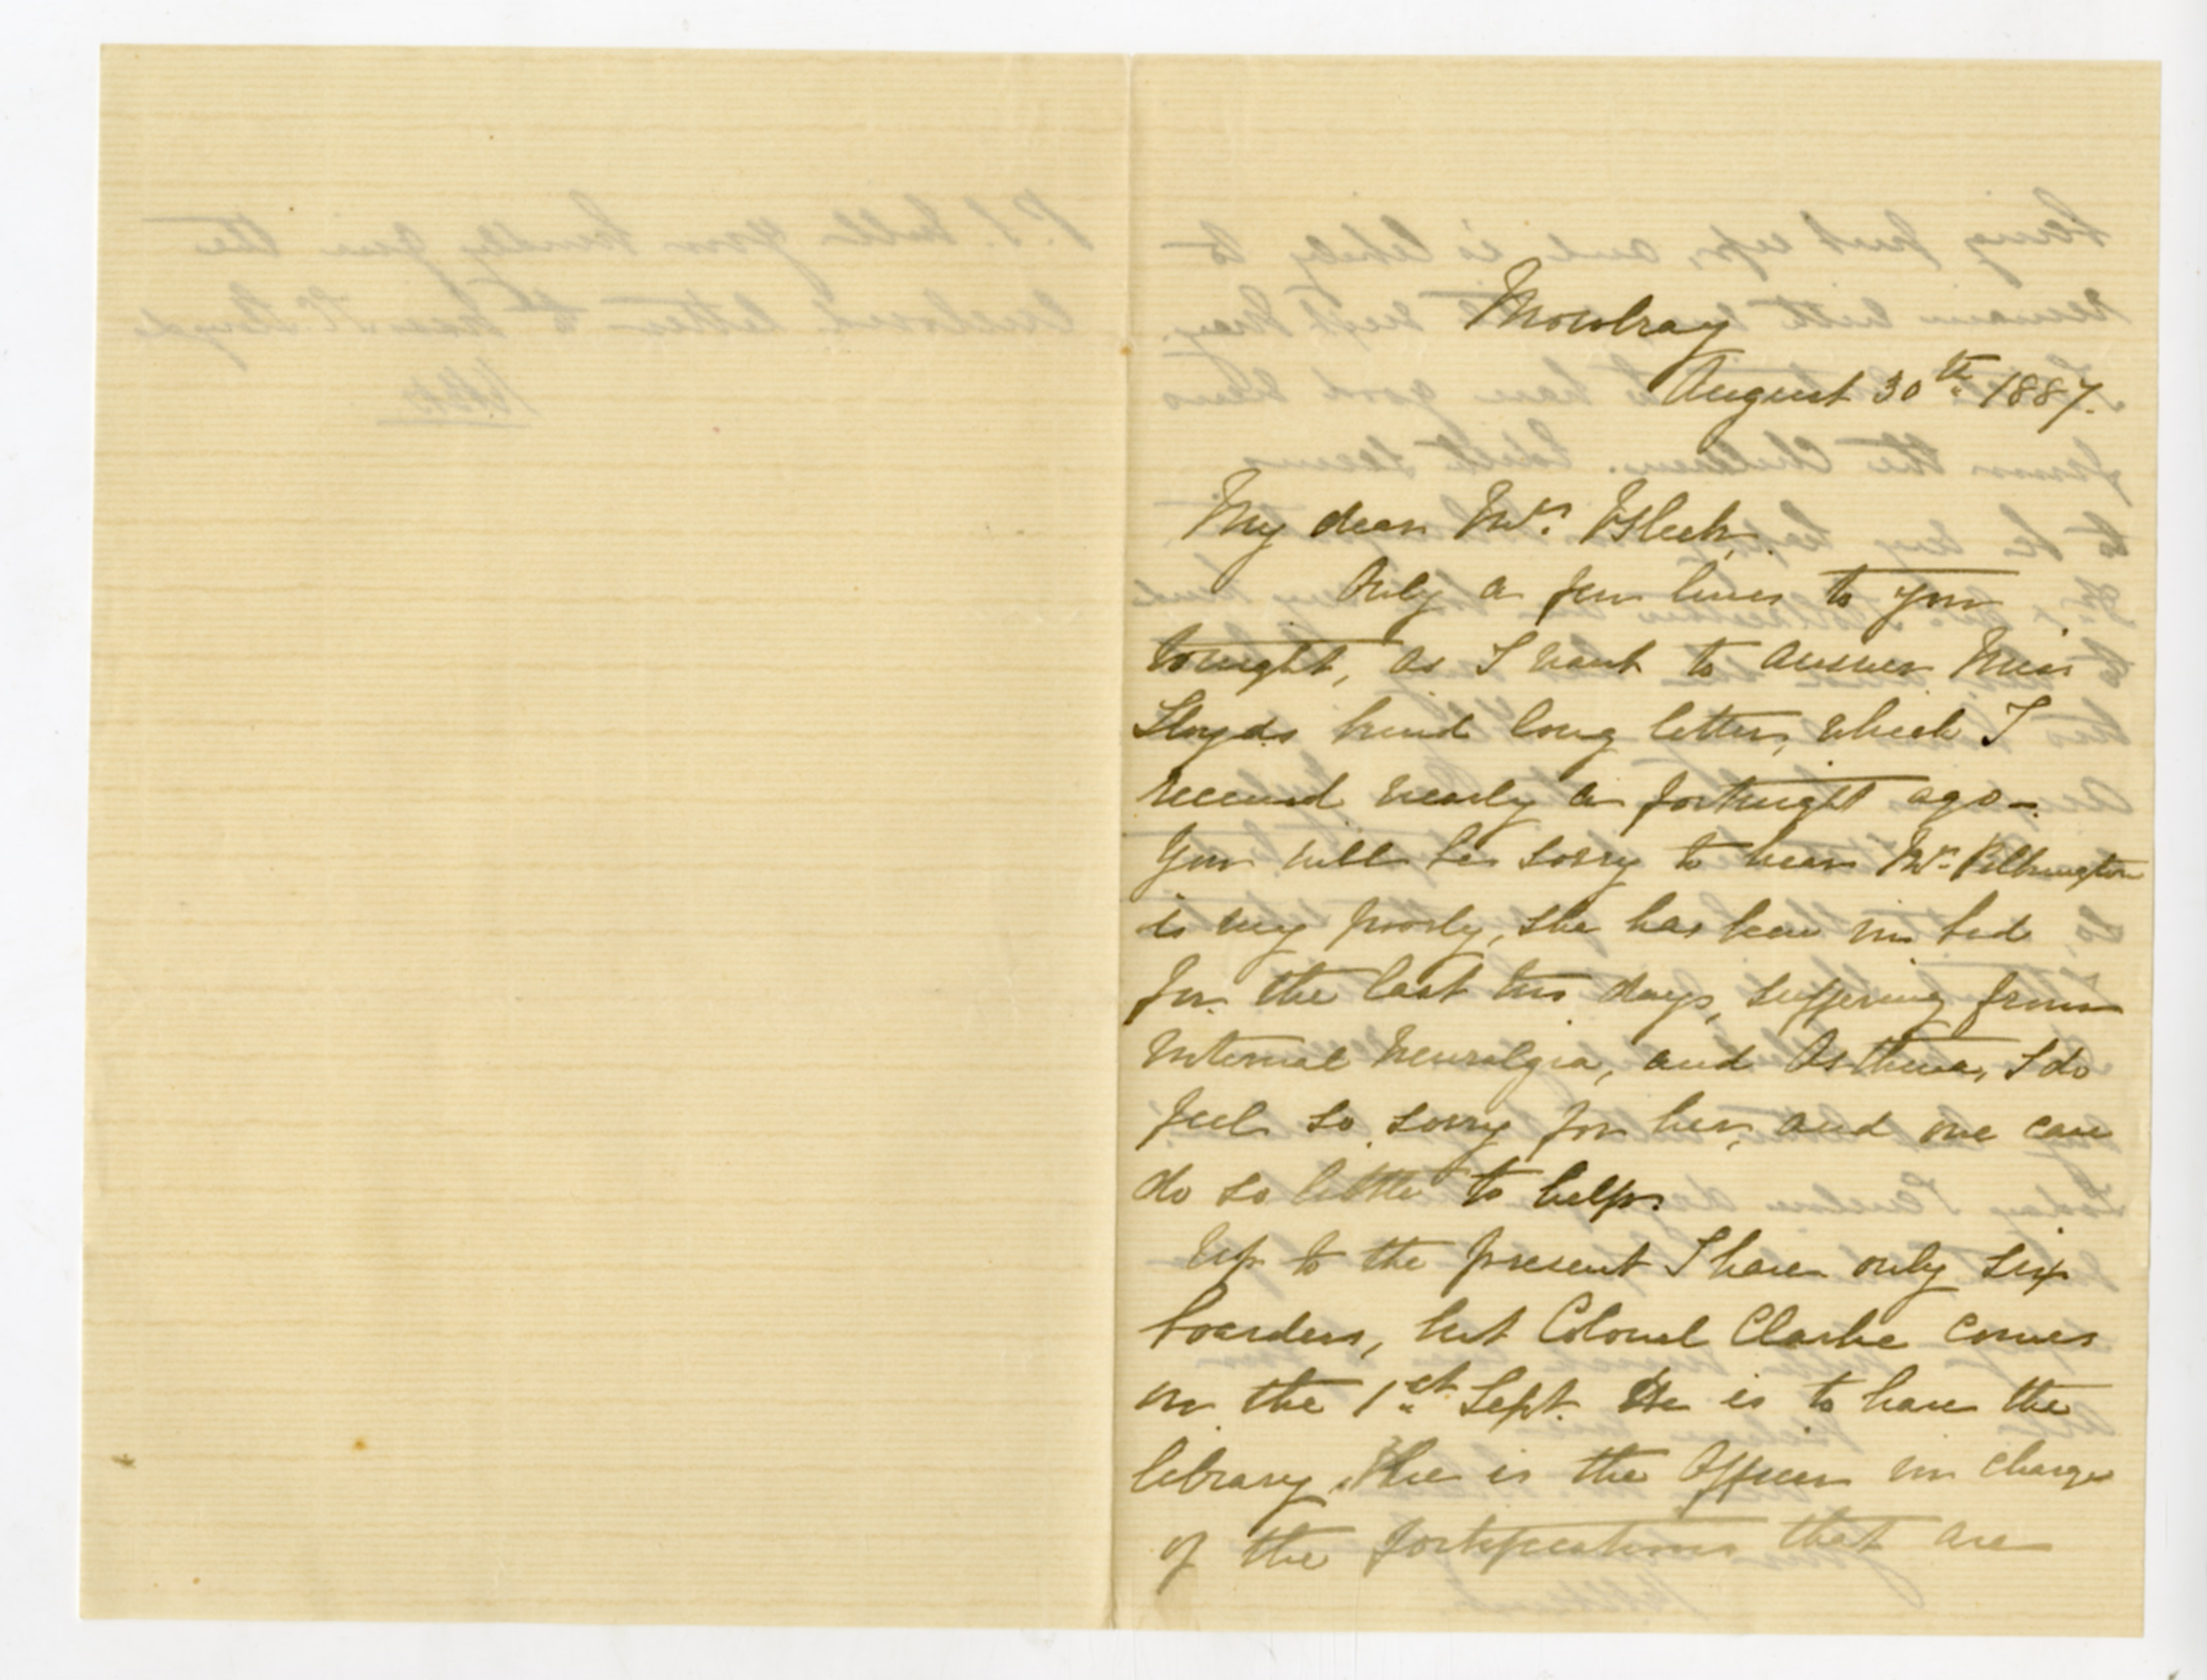 Mowbray
August 30th 1887.
My dear Mrs. Bleek,
Only a few lines to you
tonight, as I want to answer Miss
Lloyds kind long letter, which I
received nearly a fortnight ago -
You will be sorry to hear Mrs. Pilkington
is very poorly, she has been in bed
for the last two days, suffering from
internal Neuralgia, and Asthma, I do
feel so sorry for her, and one can
do so little to help.
Up to the present I have only six
boarders, but Colonel Clarke comes
on the 1st Sept. He is to have the
library. He is the Officer in charge
of the fortifications that are